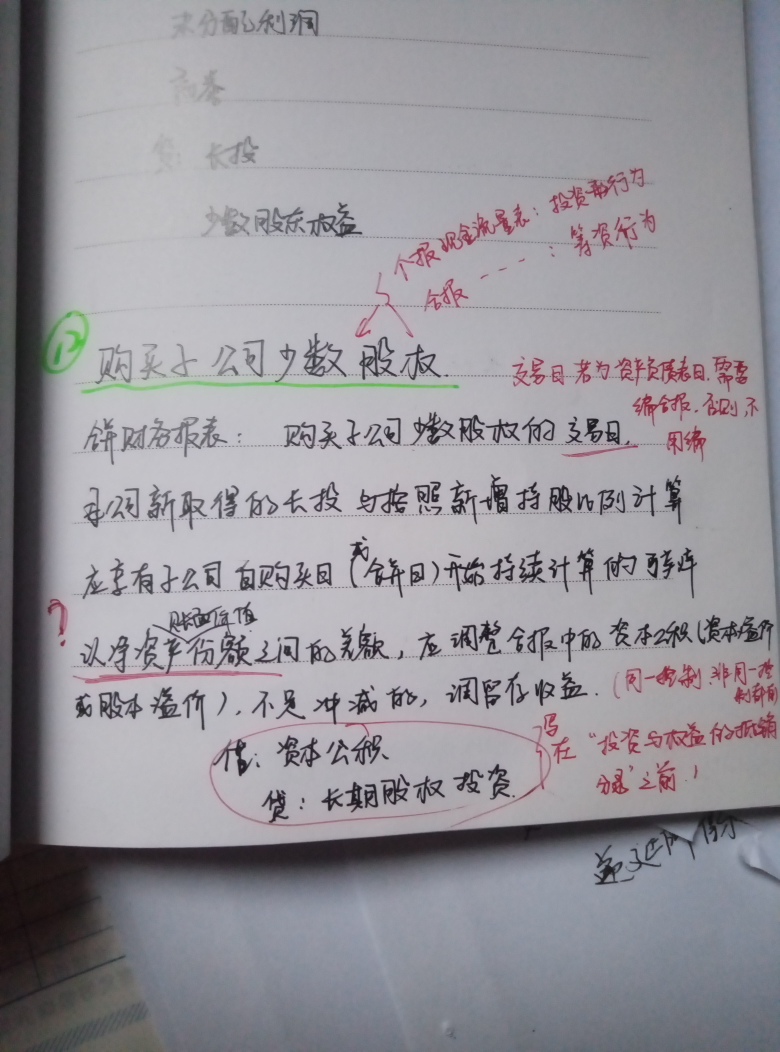 未分配利润
商誉
贷: 长投
少数股东权益
个报现金流量表: 投资行为
合报 - - - - : 筹资行为
12
购买子公司少数股权.
交易日若为资产负债表日, 需要
编合报. 否则, 不
用编
合并财务报表: 购买子公司少数股权的交易日.
母公司新取得的长投与按照新增持股比例计算
应享有子公司自购买日(或合并日)开始持续计算的可辨
? 账面价值
认净资产份额之间的差额, 应调整合报中的资本公积(资本溢价
或股本溢价), 不足冲减的, 调留存收益. (同一控制、非同一控
制都用
借: 资本公积
贷: 长期股权投资.
写在 "投资与权益的抵销
分录"之前!